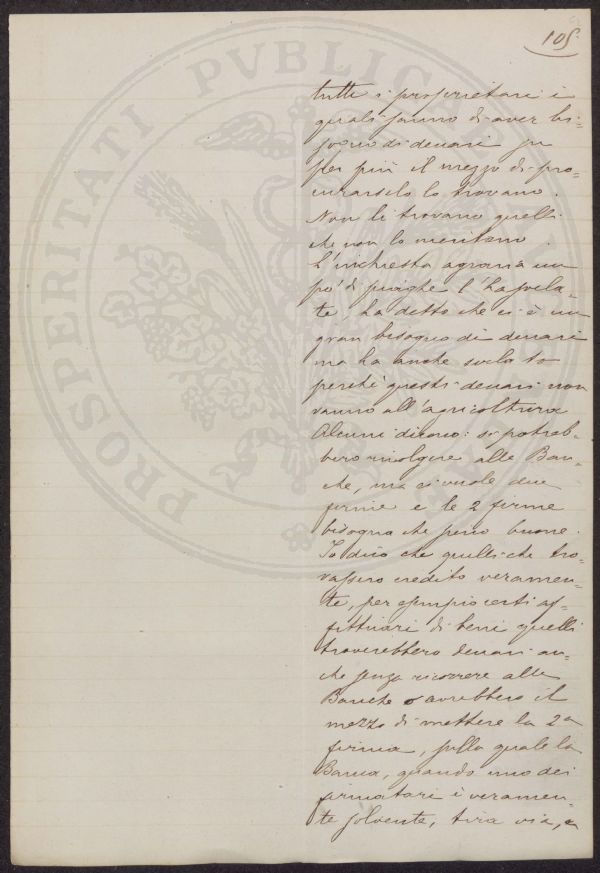 105
tutti i proprietari i
quali sanno di aver bi=
sogno di denari su
per più il mezzo di pro=
curarselo lo trovano.
Non li trovano quelli
che non lo meritano.
L'inchiesta agraria un
po' di piaghe l'ha svela=
te, ha detto che ci è un
gran bisogno di denari
ma ha anche svelato
perchè questi denari non
vanno all'agricoltura
Alcuni dicono: si potreb=
bero rivolgere alle Ban=
che, ma ci vuole due
firme e le 2 firme
bisogna che sieno buone.
Io dico che quelli che tro=
vassero credito veramen=
te, per esempio certi af=
fittuari di beni quelli
troverebbero denari an=
che senza ricorrere alle
Banche o avrebbero il
mezzo di mettere la 2a
firma, sulla quale la
Banca, quando uno dei
firmatari è veramen=
te solvente, tira via, e
PROSPERITATI PVBLICAE